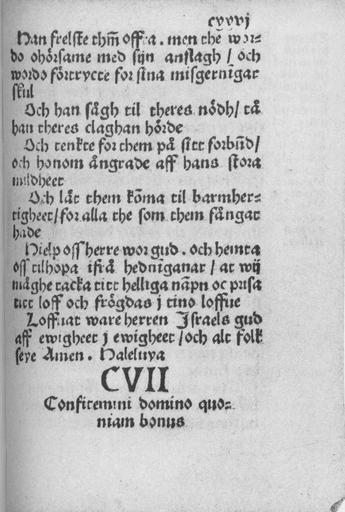 cxxvj
Han frelste thm̄ offta. men the wor-
do ohörsame med sijn anslagh / och
wordo förtryckte for sina misgerningar
skul
Och han sågh til theres nödh / tå
han theres claghan hörde
Och tenkte for them på sitt forbūd /
och honom ångrade aff hans stora
mildheet
Och lät them kōma til barmher-
tigheet / for alla the som them fångat
hade
Hielp oss herre wor gud. och hemta
oss tilhopa ifrå hedninganar / at wij
måghe tacka titt helliga nāpn oc prisa
titt loff och frögdas j tino loffue
Loffuat ware herren Israels gud
aff ewigheet j ewigheet / och alt folk
seye Amen. Haleluya
CVII
Confitemini domino quo-
niam bonus